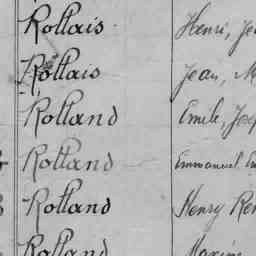 Rollais Henri, Je
Rollais Jean, M
Rolland Emile, Jos
Rolland Emmanuel E
Rolland Henry Ren
Rolland Maxime